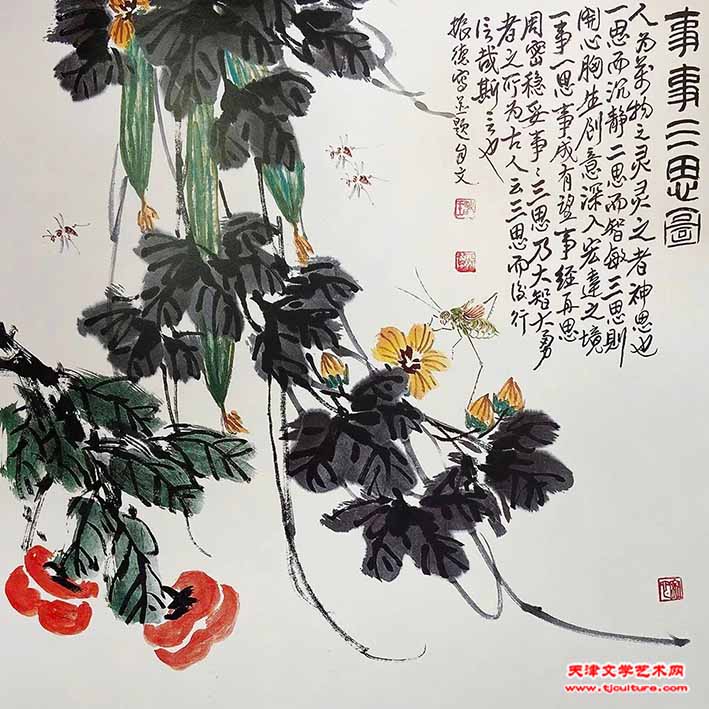 事事三思圖
人为萬物之灵灵之者神思也
一思而沉静二思而智敏三思則
開心胸生创意深入宏達之境
一事一思事成有望事经再思
周密穩妥事〻三思乃大智大勇
者之所为古人云三思而後行
信哉斯言也
振德寫並题自文
天津文学艺术网
www.tjculture.com